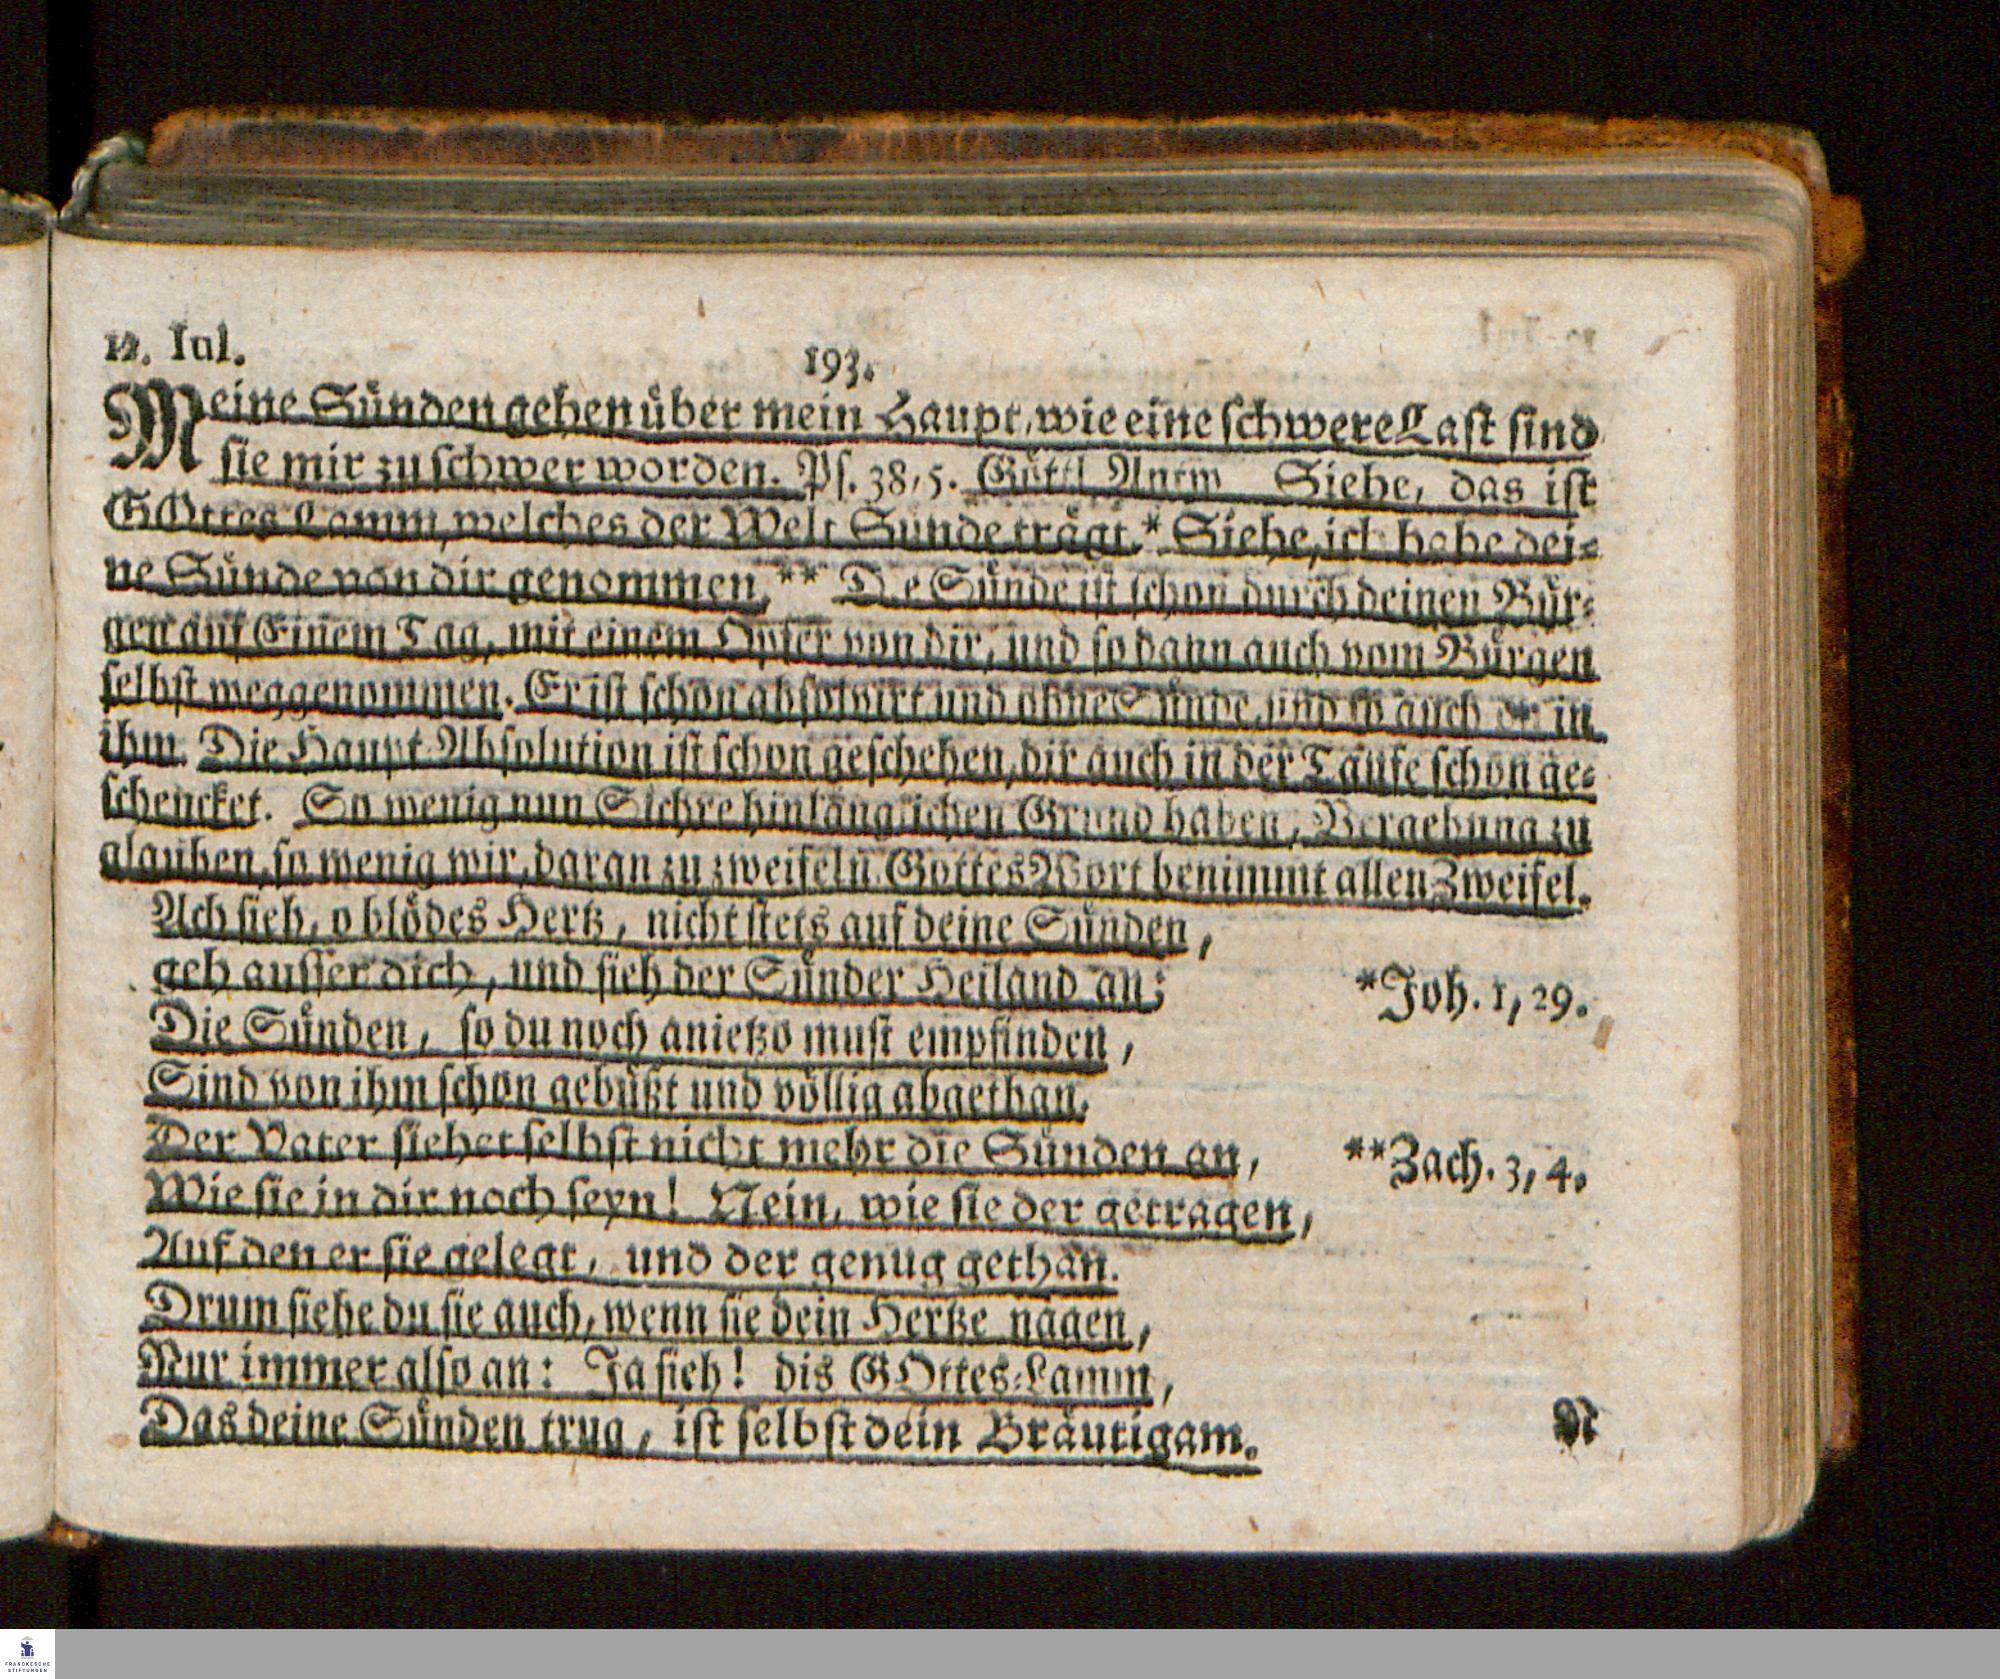 12. Iul.
193.
Meine Sünden gehen über mein Haupt, wie eine schwere Last sind
sie mir zu schwer worden. Ps. 38, 5. Göttl Antw Siehe, das ist
GOttes Lamm, welches der Welt Sünde trägt.* Siehe, ich habe dei-
ne Sünde von dir genommen.** Die Sünde ist schon durch deinen Bür-
gen auf Einem Tag, mit einem Opfer von dir, und so dann auch vom Bürgen
selbst weggenommen. Er ist schon absolvirt und ohne Sünde, und so auch du in
ihm. Die Haupt-Absolution ist schon geschehen, dir auch in der Taufe schon ge-
schencket. So wenig nun Sichre hinlänglichen Grund haben, Vergebung zu
glauben, so wenig wir, daran zu zweifeln. Gottes Wort benimmt allen Zweifel.
Ach sieh, o blödes Hertz, nicht stets auf deine Sünden,
geh ausser dich, und sieh der Sünder Heiland an;
*Joh. 1, 29.
Die Sünden, so du noch anietzo must empfinden,
Sind von ihm schon gebüßt und völlig abgethan.
Der Vater siehet selbst nicht mehr die Sünden an,
**Zach. 3, 4.
Wie sie in dir noch seyn! Nein, wie sie der getragen,
Auf den er sie gelegt, und der genug gethan.
Drum siehe du sie auch, wenn sie dein Hertze nagen,
Nur immer also an: Ja sieh! dis GOttes-Lamm,
Das deine Sünden trug, ist selbst dein Bräutigam.
N
FRANCKESCHE
STIFTUNGEN